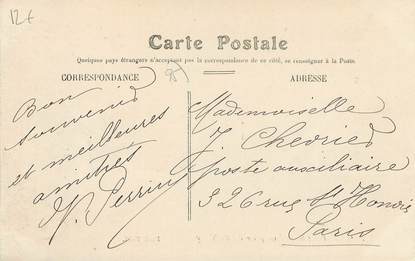 12€
Carte Postale
Quelques pays étrangers n'acceptent pas la correspondance de ce côté, se renseigner à la Poste.
CORRESPONDANCE
ADRESSE
Bon
souvenir
et meilleures
amitiés
Mademoiselle
J Chevrier
poste auxiliaire
326 rue St Honoré
Paris